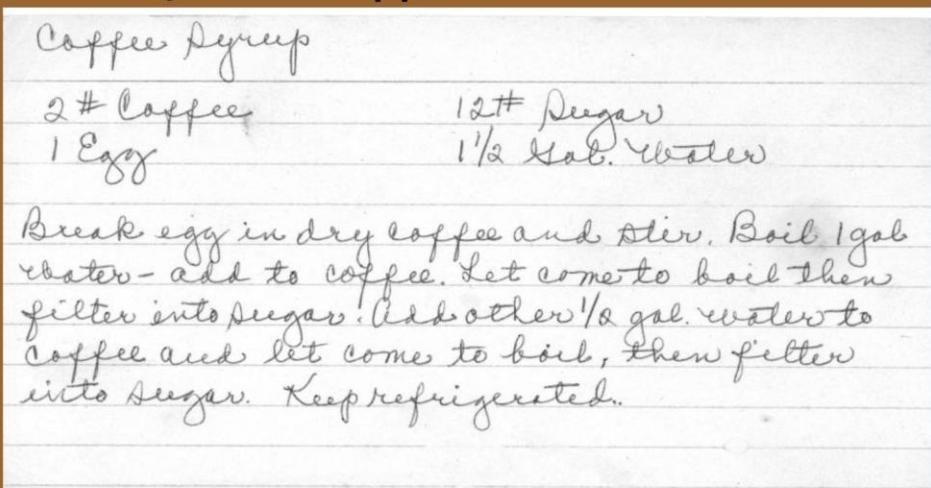 Coffee Syrup
2# Coffee 12# Sugar
1 Egg 1 1/2 Gal. Water
Break egg in dry coffee and stir. Boil 1 gal
water - add to coffee. Let come to boil then
filter into sugar. Add other 1/2 gal. water to
coffee and let come to boil, then filter
into sugar. Keep refrigerated..